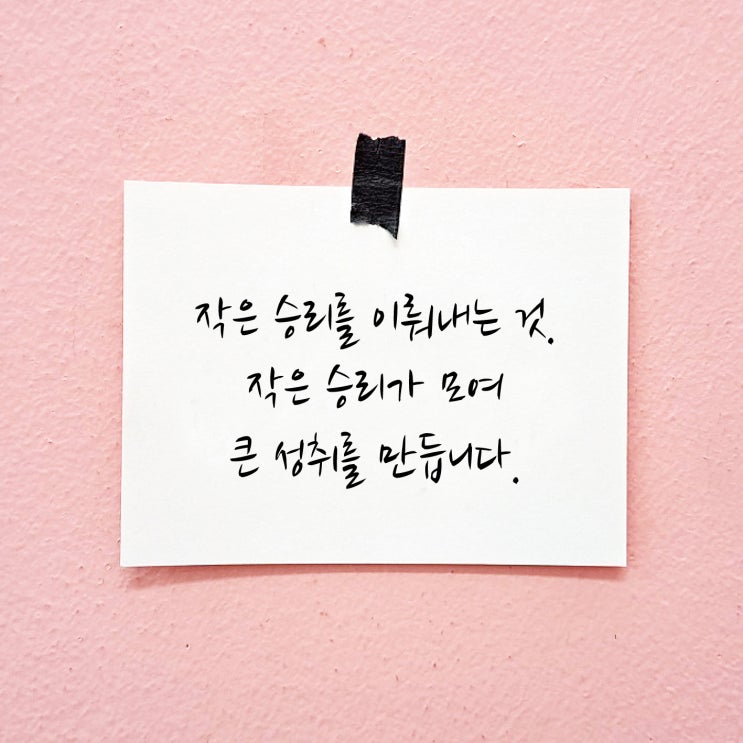 작은 승리를 이뤄내는 것.
작은 승리가 모여
큰 성취를 만듭니다.